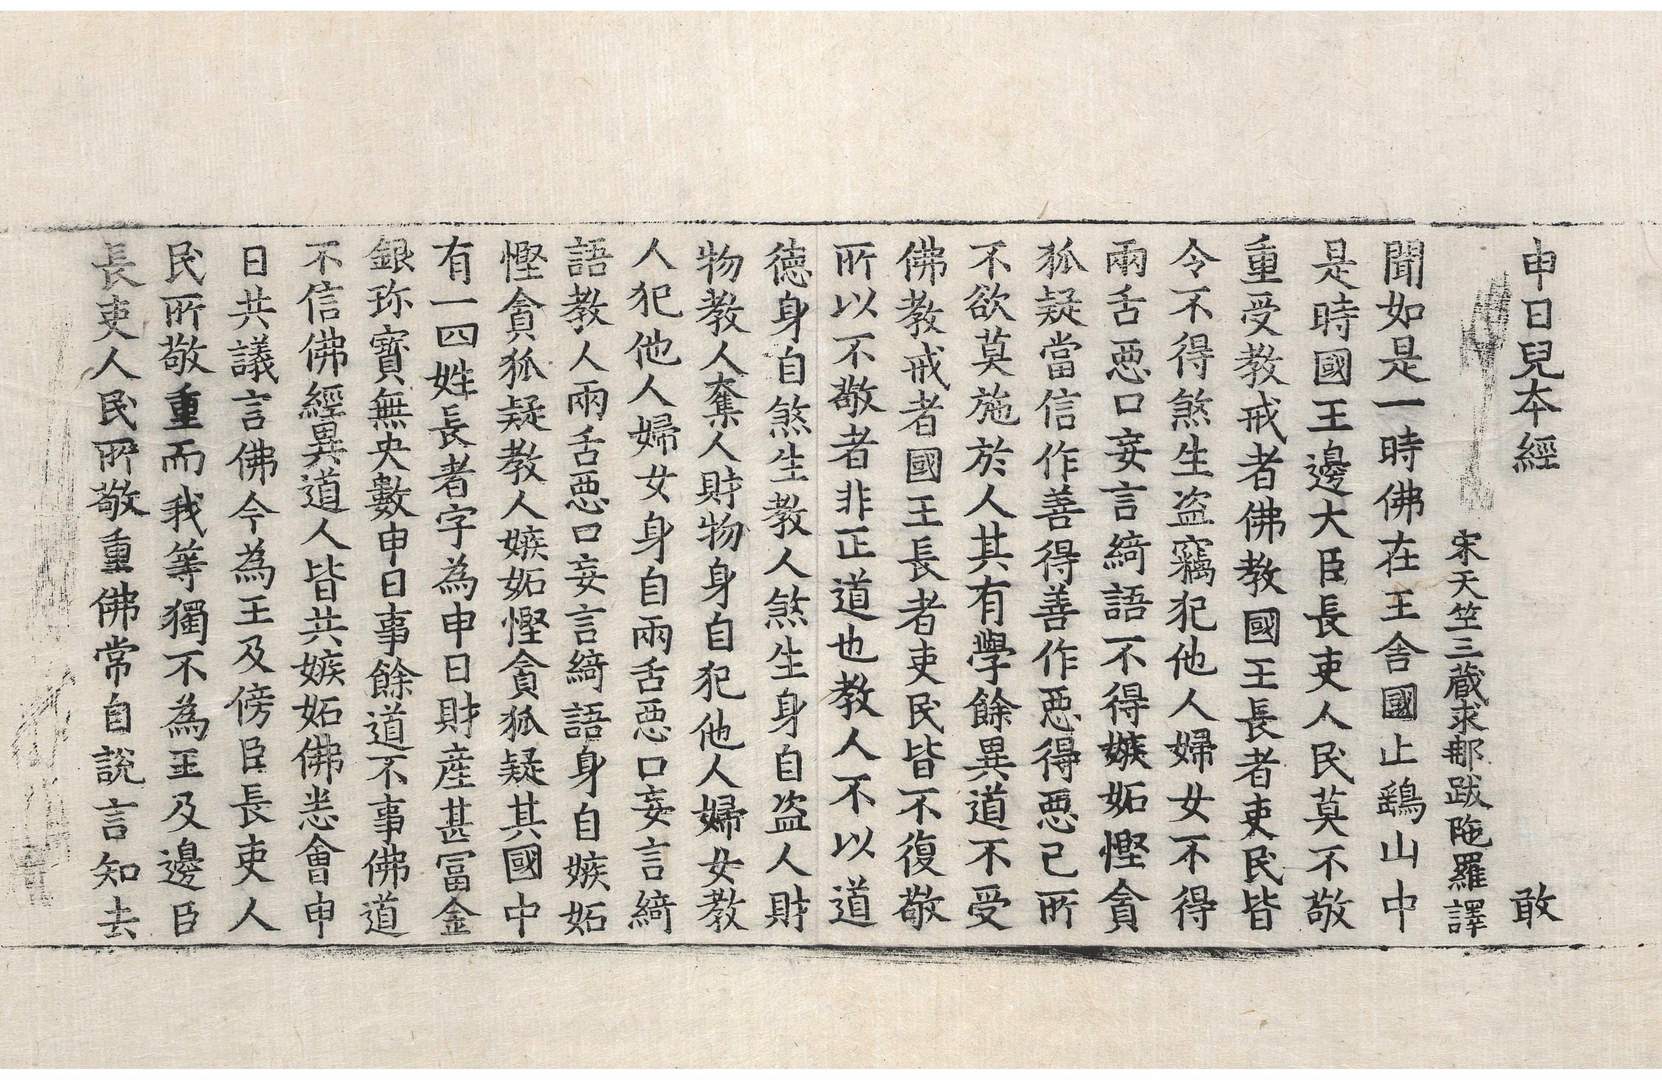 申日兒本經　敢
宋天竺三藏求那跋陁羅譯
聞如是一時佛在王舍國止鷄山中
是時國王邊大臣長吏人民莫不敬
重受教戒者佛教國王長者吏民皆
令不得煞生盜竊犯他人婦女不得
兩舌惡口妄言綺語不得嫉妬慳貪
狐疑當信作善得善作惡得惡己所
不欲莫施於人其有學餘異道不受
佛教戒者國王長者吏民皆不復敬
所以不敬者非正道也教人不以道
德身自煞生教人煞生身自盜人財
物教人奪人財物身自犯他人婦女教
人犯他人婦女身自兩舌惡口妄言綺
語教人兩舌惡口妄言綺語身自嫉妬
慳貪狐疑教人嫉妬慳貪狐疑其國中
有一四姓長者字為申日財產甚冨金
銀珎寶無央數申日事餘道不事佛道
不信佛經異道人皆共嫉妬佛恙會申
日共議言佛今為王及傍臣長吏人
民所敬重而我等獨不為王及邊臣
長吏人民所敬重佛常自說言知去